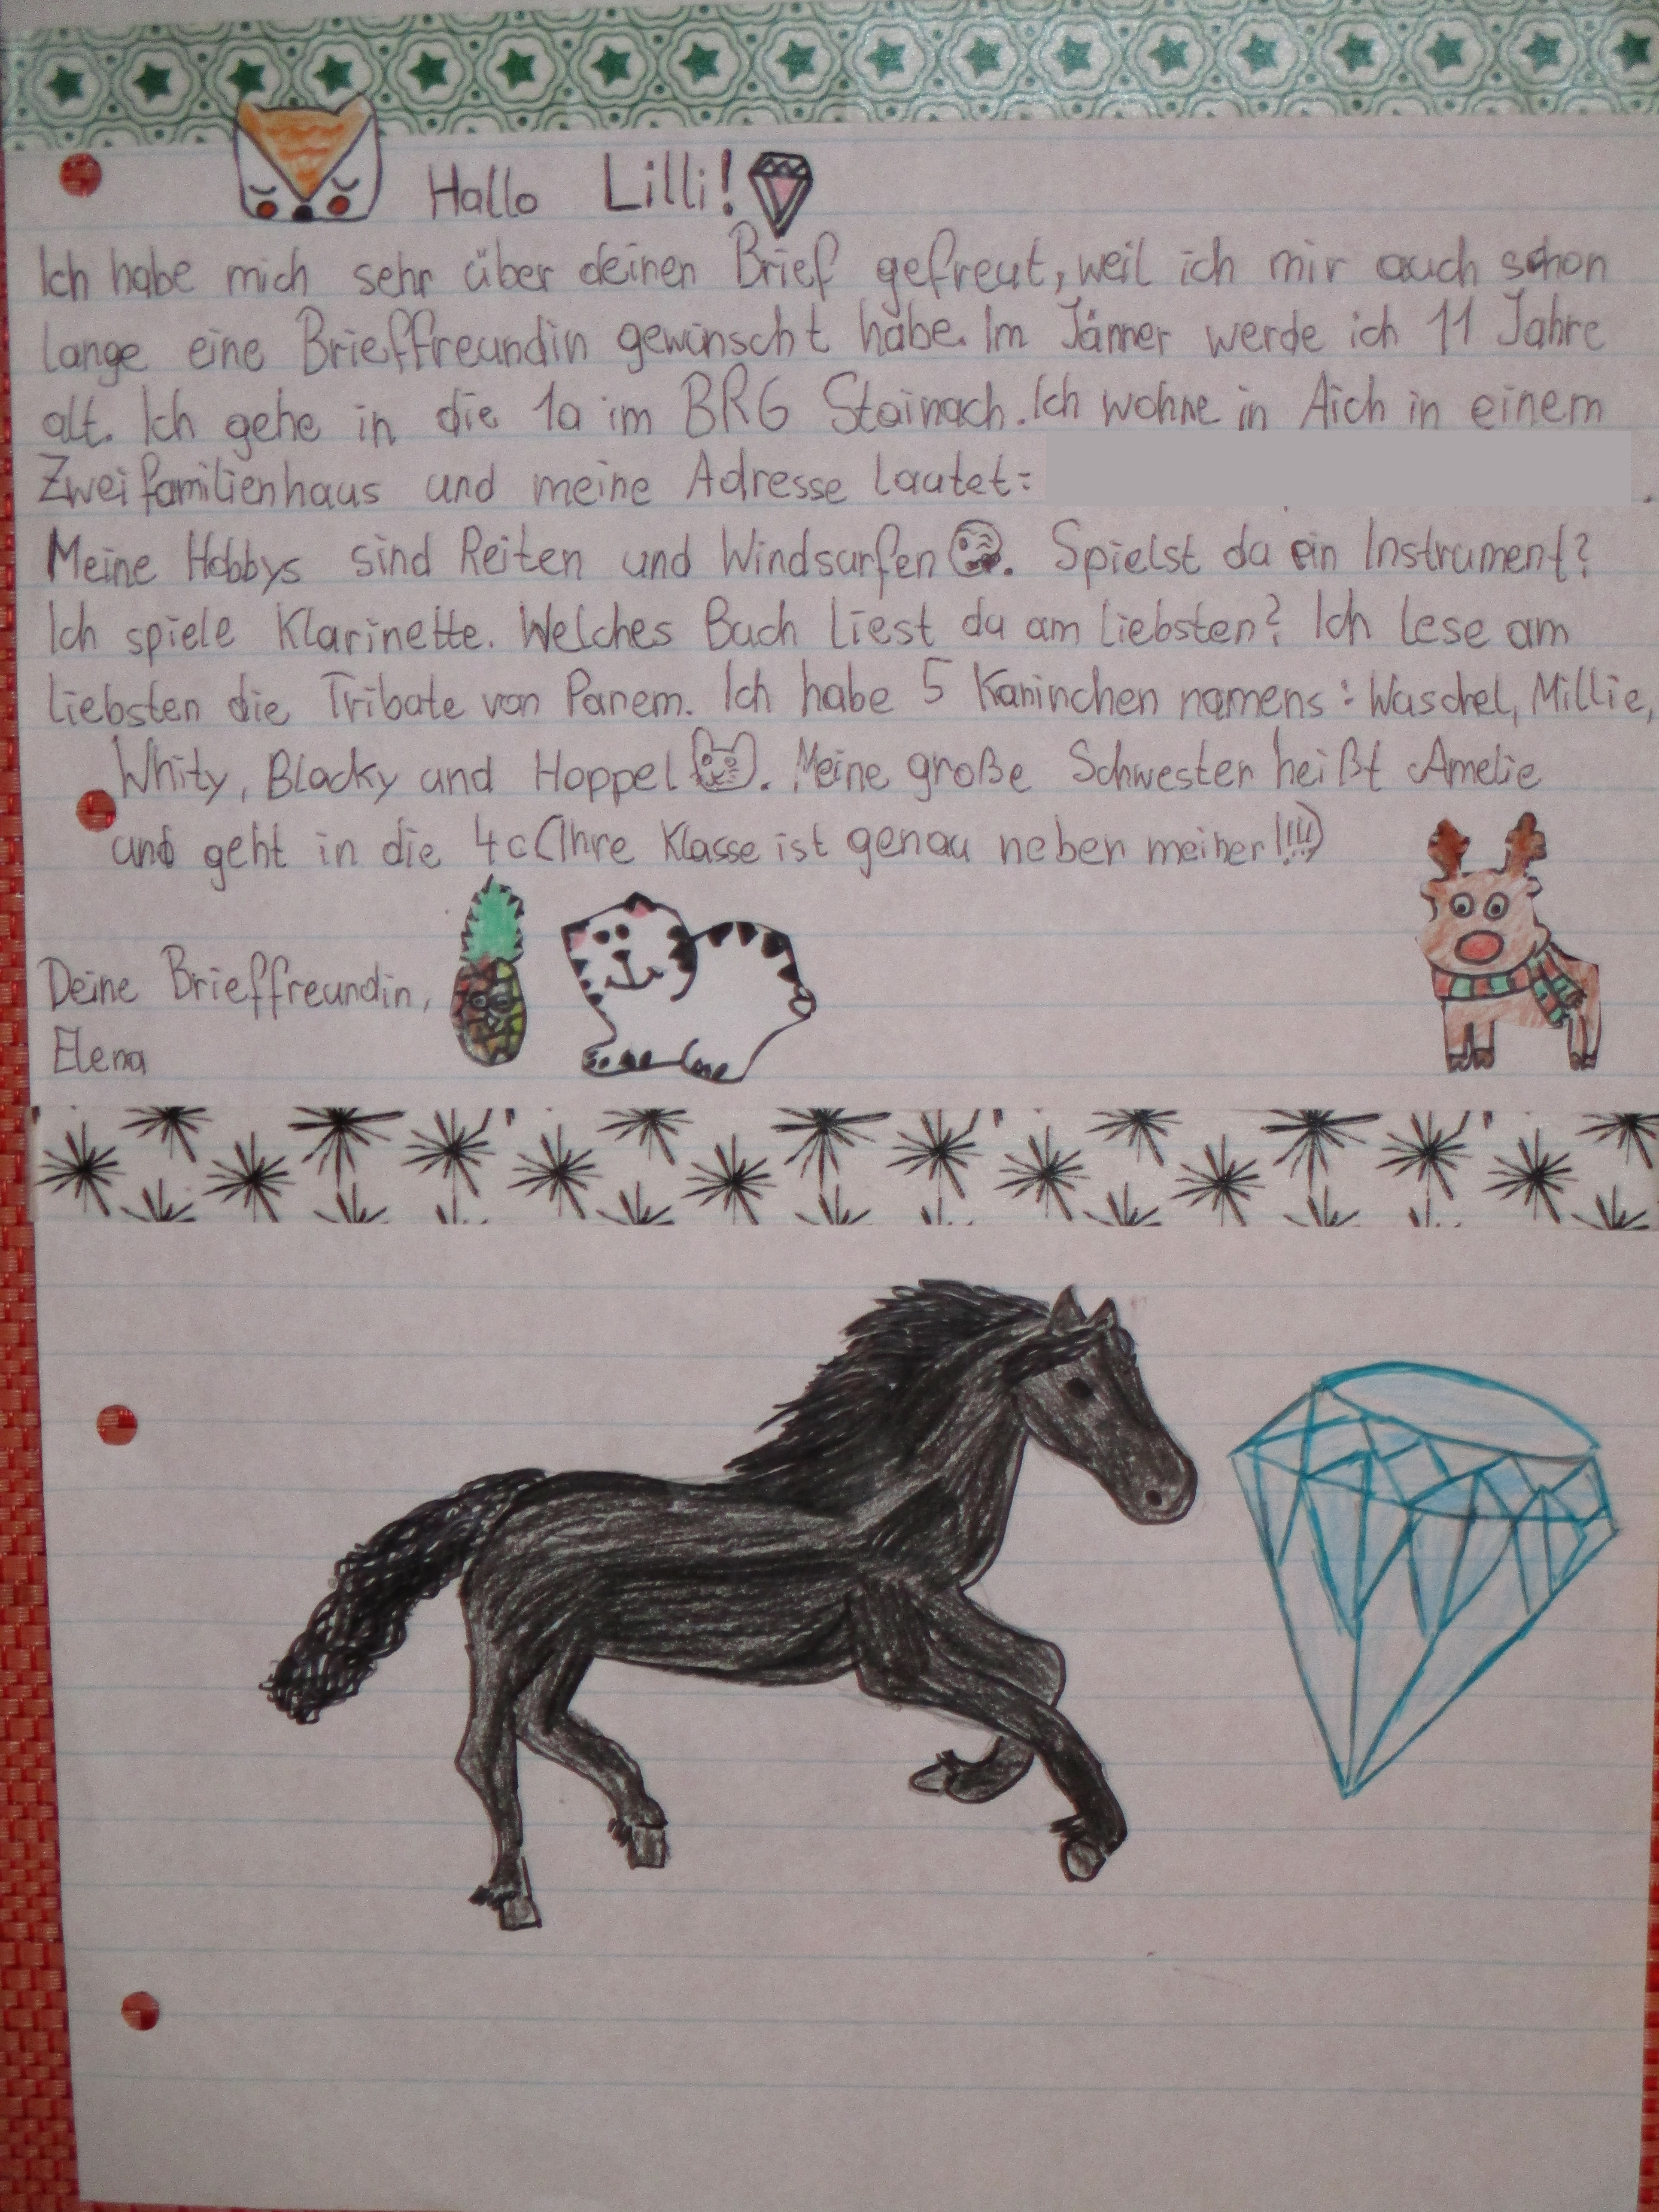 Hallo Lilli!
Ich habe mich sehr über deinen Brief gefreut, weil ich mir auch schon
lange eine Brieffreundin gewünscht habe. Im Jänner werde ich 11 Jahre
alt. Ich gehe in die 1a im BRG Stainach. Ich wohne in Aich in einem
Zweifamilienhaus und meine Adresse lautet: .
Meine Hobbys sind Reiten und Windsurfen. Spielst du ein Instrument?
Ich spiele Klarinette. Welches Buch liest du am liebsten? Ich lese am
liebsten die Tribute von Panem. Ich habe 5 Kaninchen namens: Waschel, Millie,
Whity, Blacky und Hoppel. Meine große Schwester heißt Amelie
und geht in die 4c (Ihre Klasse ist genau neben meiner!!!!)
Deine Brieffreundin,
Elena